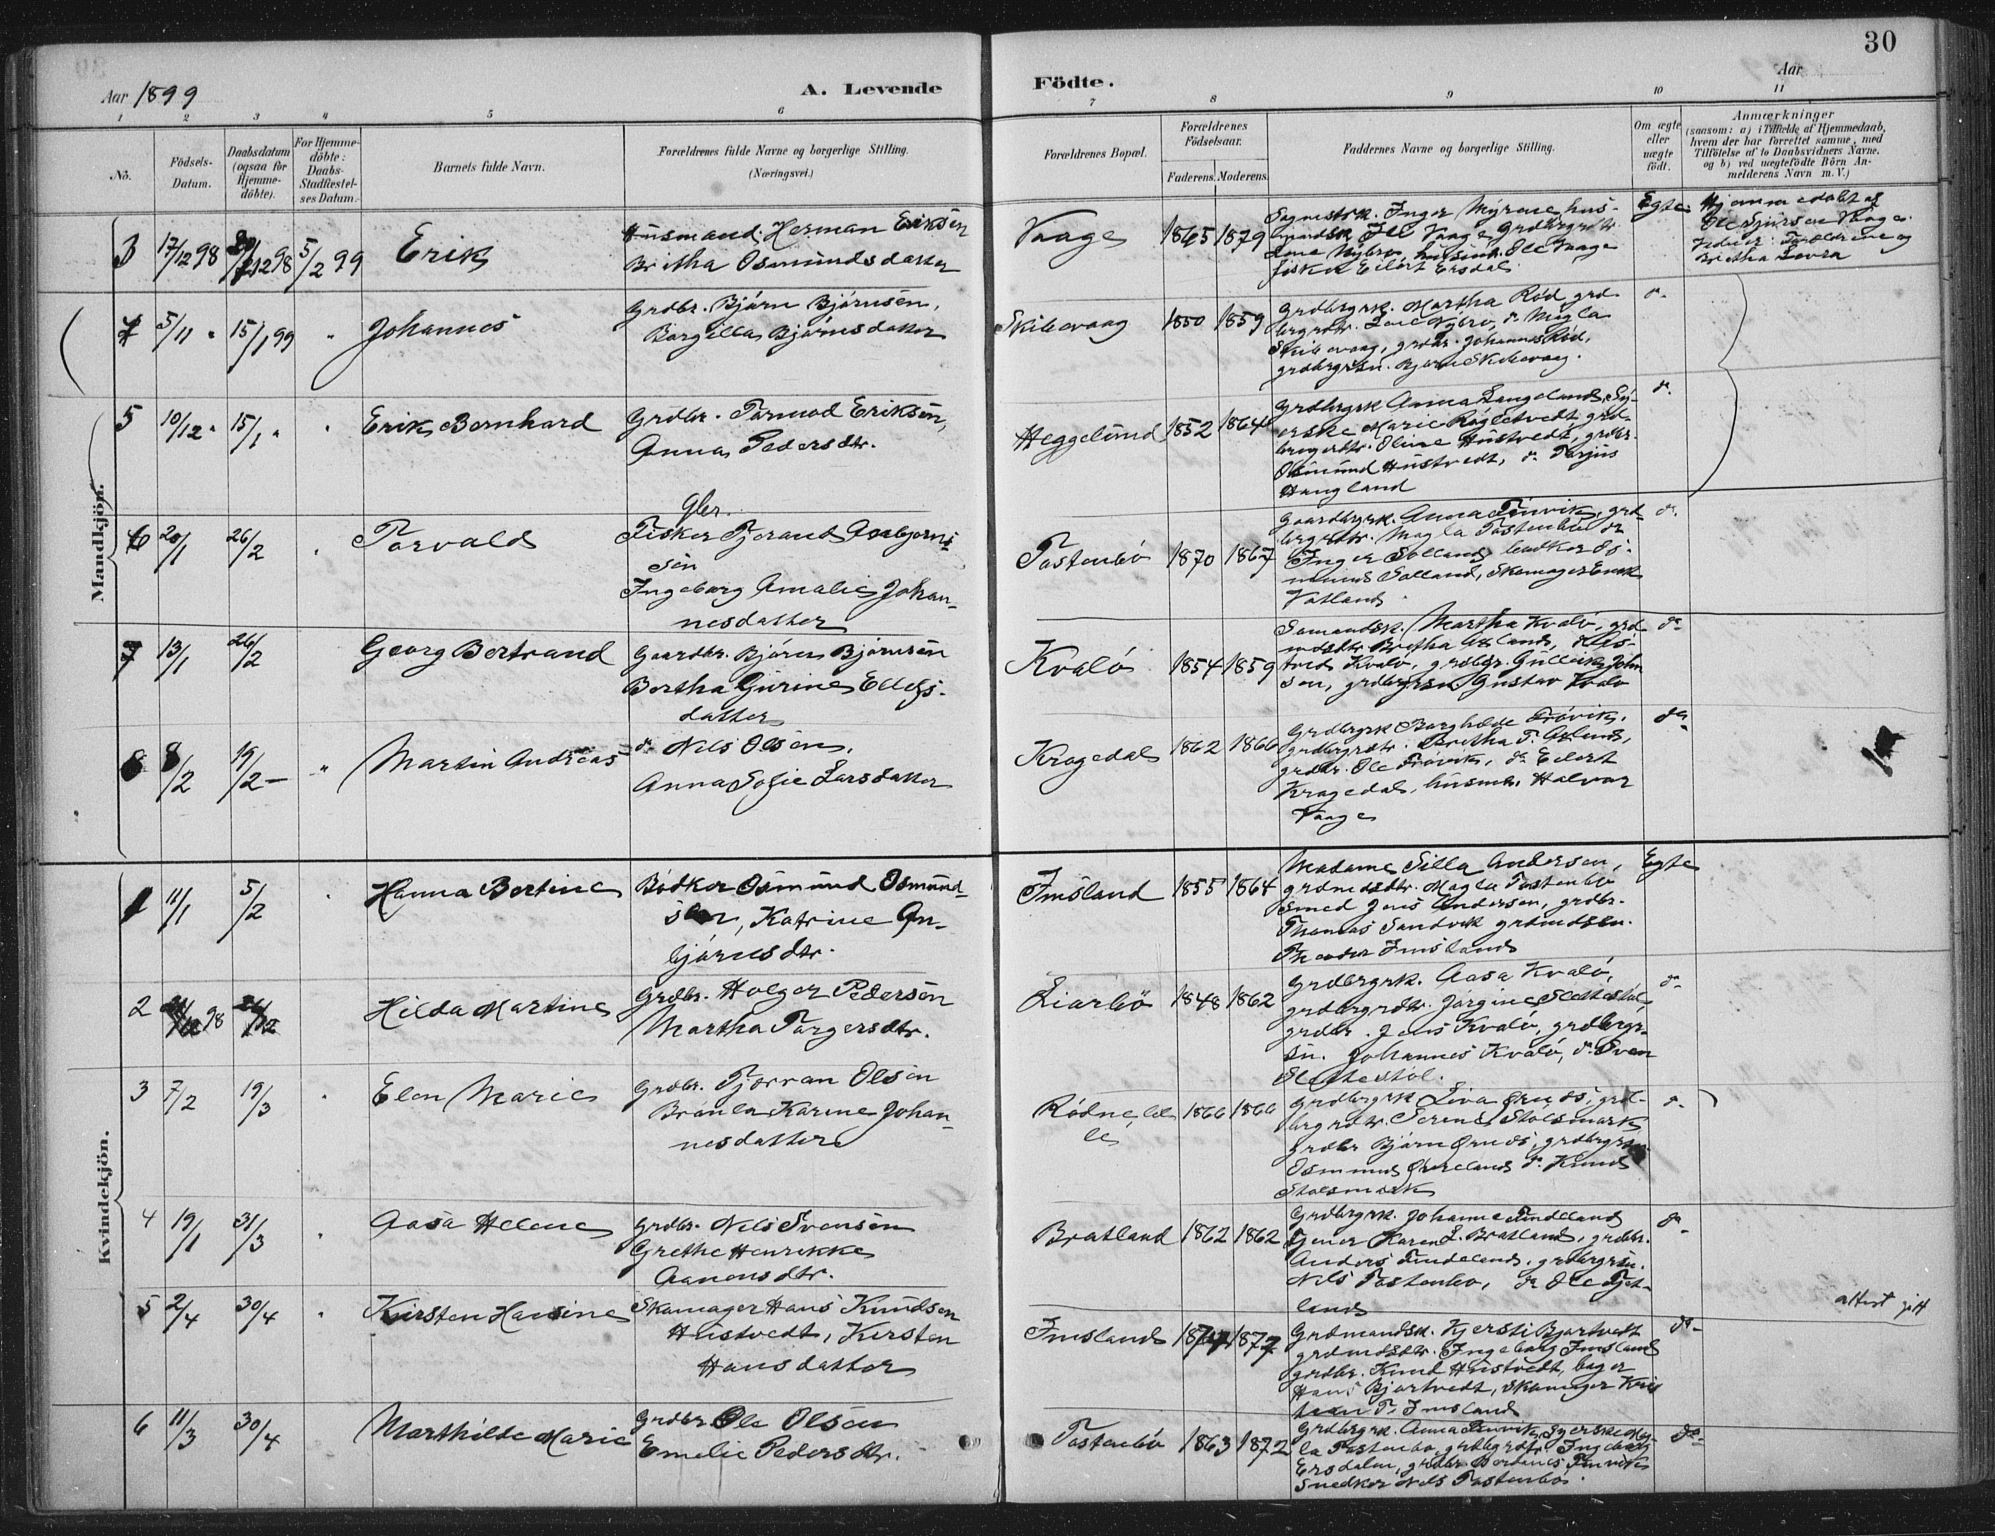 30
Aar 1899
A. Levende
Födte.
Aar
1 2 3 4 5 6 7 8 9 10 11
No.
Födsels-Datum.
Daabsdatum (ogsaa for Hjemmedöbte).
For Hjemmedöbte: Daabs-Stadfæstelses Datum.
Barnets fulde Navn.
Forældrenes fulde Navne og borgerlige Stilling.
(Næringsvei.)
Forældrenes Bopæl.
Forældrenes Födselsaar.
Faderens. Moderens.
Faddernes Navne og borgerlige Stilling.
Om ægte eller uægte födt.
Anmærkninger
(saasom: a) i Tilfælde af Hjemmedaab, hvem der har forrettet samme, med Tilföielse af to Daabsvidners Navne. og b) ved uægtefödte Börn Anmelderens Navn m. V.)
Mandkjön.
3 17/12 98 5/2 99 Erik
Husmand Herman Eriksen
Britha Osmundsdatter
Vaage 1865 1879
Inger Myrene hus-
Ole Vaage
fisker Eilert Ersdal
Egte
Hjemmedöbt af
Ole Vaage
Forældrene og
Britha
5/11 15/1 99 Johannes
Grdbr. Björn Björnsen,
Borgilla Björnsdatter
Skibevaag 1850 1859
Grdbrgrk. Martha Röd, grd-
Skibevaag, grdbr. Johannes Röd,
grdbrgrsn. Bjorn Skibevaag.
do.
5 10/12 15/1 Erik Bernhard
Grdbr. Tormod Eriksen,
Anna Pedersdtr.
Heggelund 1852 1864
Grdbrgrk Anna Langeland, Sy-
erske Marie Rögletvedt, grd-
brugerdtr. Oline Hustvedt, grdbr.
Osmund Hustvedt, do. Torjus
Haugland
do.
6 20/1 26/2 Torvald
Gbr.
Fisker Tjerand Asbjorn-
sen
Ingeborg Amalie Johan-
nesdatter
Tostenbö 1870 1867
Gaardbrgrk. Anna Finvik, grd-
brgrdtr. Magla Tostenbö do
Inger Solland,
Solland, Skomager Erik
Vatland
do.
7 13/1 26/2 Georg Bertrand
Gaardbr. Björn Björnsen
Bertha Gurine Ellefs-
datter
Kvalö 1854 1859
Martha Kvalö, grd-
mdsdtr. Britha Axland,
Kvalö, grdbr. Gulleik John
sen, grdbrgrsn. Gustav Kvalö
do
8 8/2 19/2 Martin Andreas
do. Nils Olsen,
Anna Sofie Larsdatter
Kragedal 1862 1866
Grdbrgrk Borghilde Frövik,
grdbrgrdtr. Britha T. Axland,
grdbr. Ole Frövik, do. Eilert
Kragedal, husmd. Halvor
Vaage
do
Kvindekjön.
1 11/1 5/2 Hanna Bertine
Bödker Osmund Osmund-
sen, Katrine An-
björnsdtr.
Imsland 1855 1864
Madame Silla Andersen,
grdmdsdtr. Magla Tostenbö
Smed Jens Andersen, grdbr.
Thomas Sandvik grdmdssn.
Theodor Imsland
Egte
2 98 Hilda Martine
Grdbr. Holger Pedersen
Martha Torgersdtr.
Liarbö 1848 1862
Grdbrgrk. Aasa Kvalö,
grdbrgrdtr. Jorgine Slettestöl,
grdbr. Jens Kvalö, grdbrgr-
sn. Johannes Kvalö, do. Sven
Slettestöl.
do
3 7/2 19/3 Elen Marie
Grdbr. Tjerran Olsen
Karine Johan-
nesdatter
Rödne, lil
le 1866 1866
Grdbrgrk Liva Örnes, grd-
brgrdtr. Serine Stolsmark
grdbr Björn Örnes, grdbrgrsn.
Osmund Öveland do. Knud
Stolsmark
do.
4 19/1 31/3 Aasa Helene
Grdbr. Nils Svensen
Grethe Henrikke
Aanensdtr.
Bratland 1862 1862
Grdbrgrk. Johanne Tindeland
Karen L. Bratland, grdbr.
Anders Tindeland, grdbrgrsn.
Nils Tostenbö, do Ole Tjet-
land
do
5 2/4 30/4 Kirsten Hansine
Skomager Hans Knudsen
Hustvedt, Kirsten
Hansdatter
Imsland 1877
Grdmandsk. Kjersti Bjortvedt
grdmdsdtr. Ingeborg Imsland
grdbr. Knud Hustvedt, bager
Hans Bjortvedt, Skomager Kris
tian T. Imsland
do
attest
6 11/3 30/4 Marthilde Marie
Grdbr Ole Olsen
Emelie Pedersdtr.
Tostenbö 1863 1872
Grdbrgrk. Anna Finvik, Syerske Mag-
la Tostenbö, grdbrgrdtr Ingeborg
Ersdalen, grdbr. Finvik
Snedker Nils Tostenbö.
do